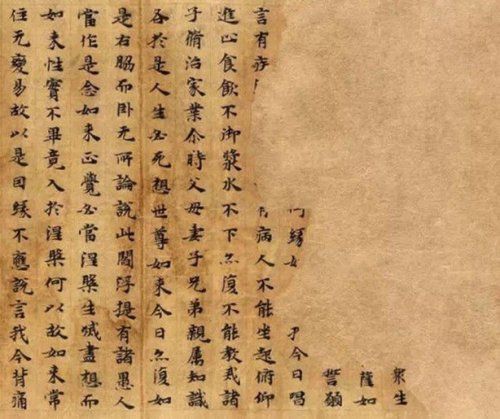 衆生
薩如
誓願
緣 今日唱
言有 病人不能坐起俯仰
進止食飲不御漿水不下亦復不能教戒諸
子脩治家業尒時父母妻子兄弟親属知識
各於是人生必死想世尊如来今日亦復如
是右脇而卧无所論說此閻浮提有諸愚人
當作是念如来正覺必當涅槃生滅盡想而
如来性實不畢竟入於涅槃何以故如来常
住无變易故以是因緣不應說言我今背痛